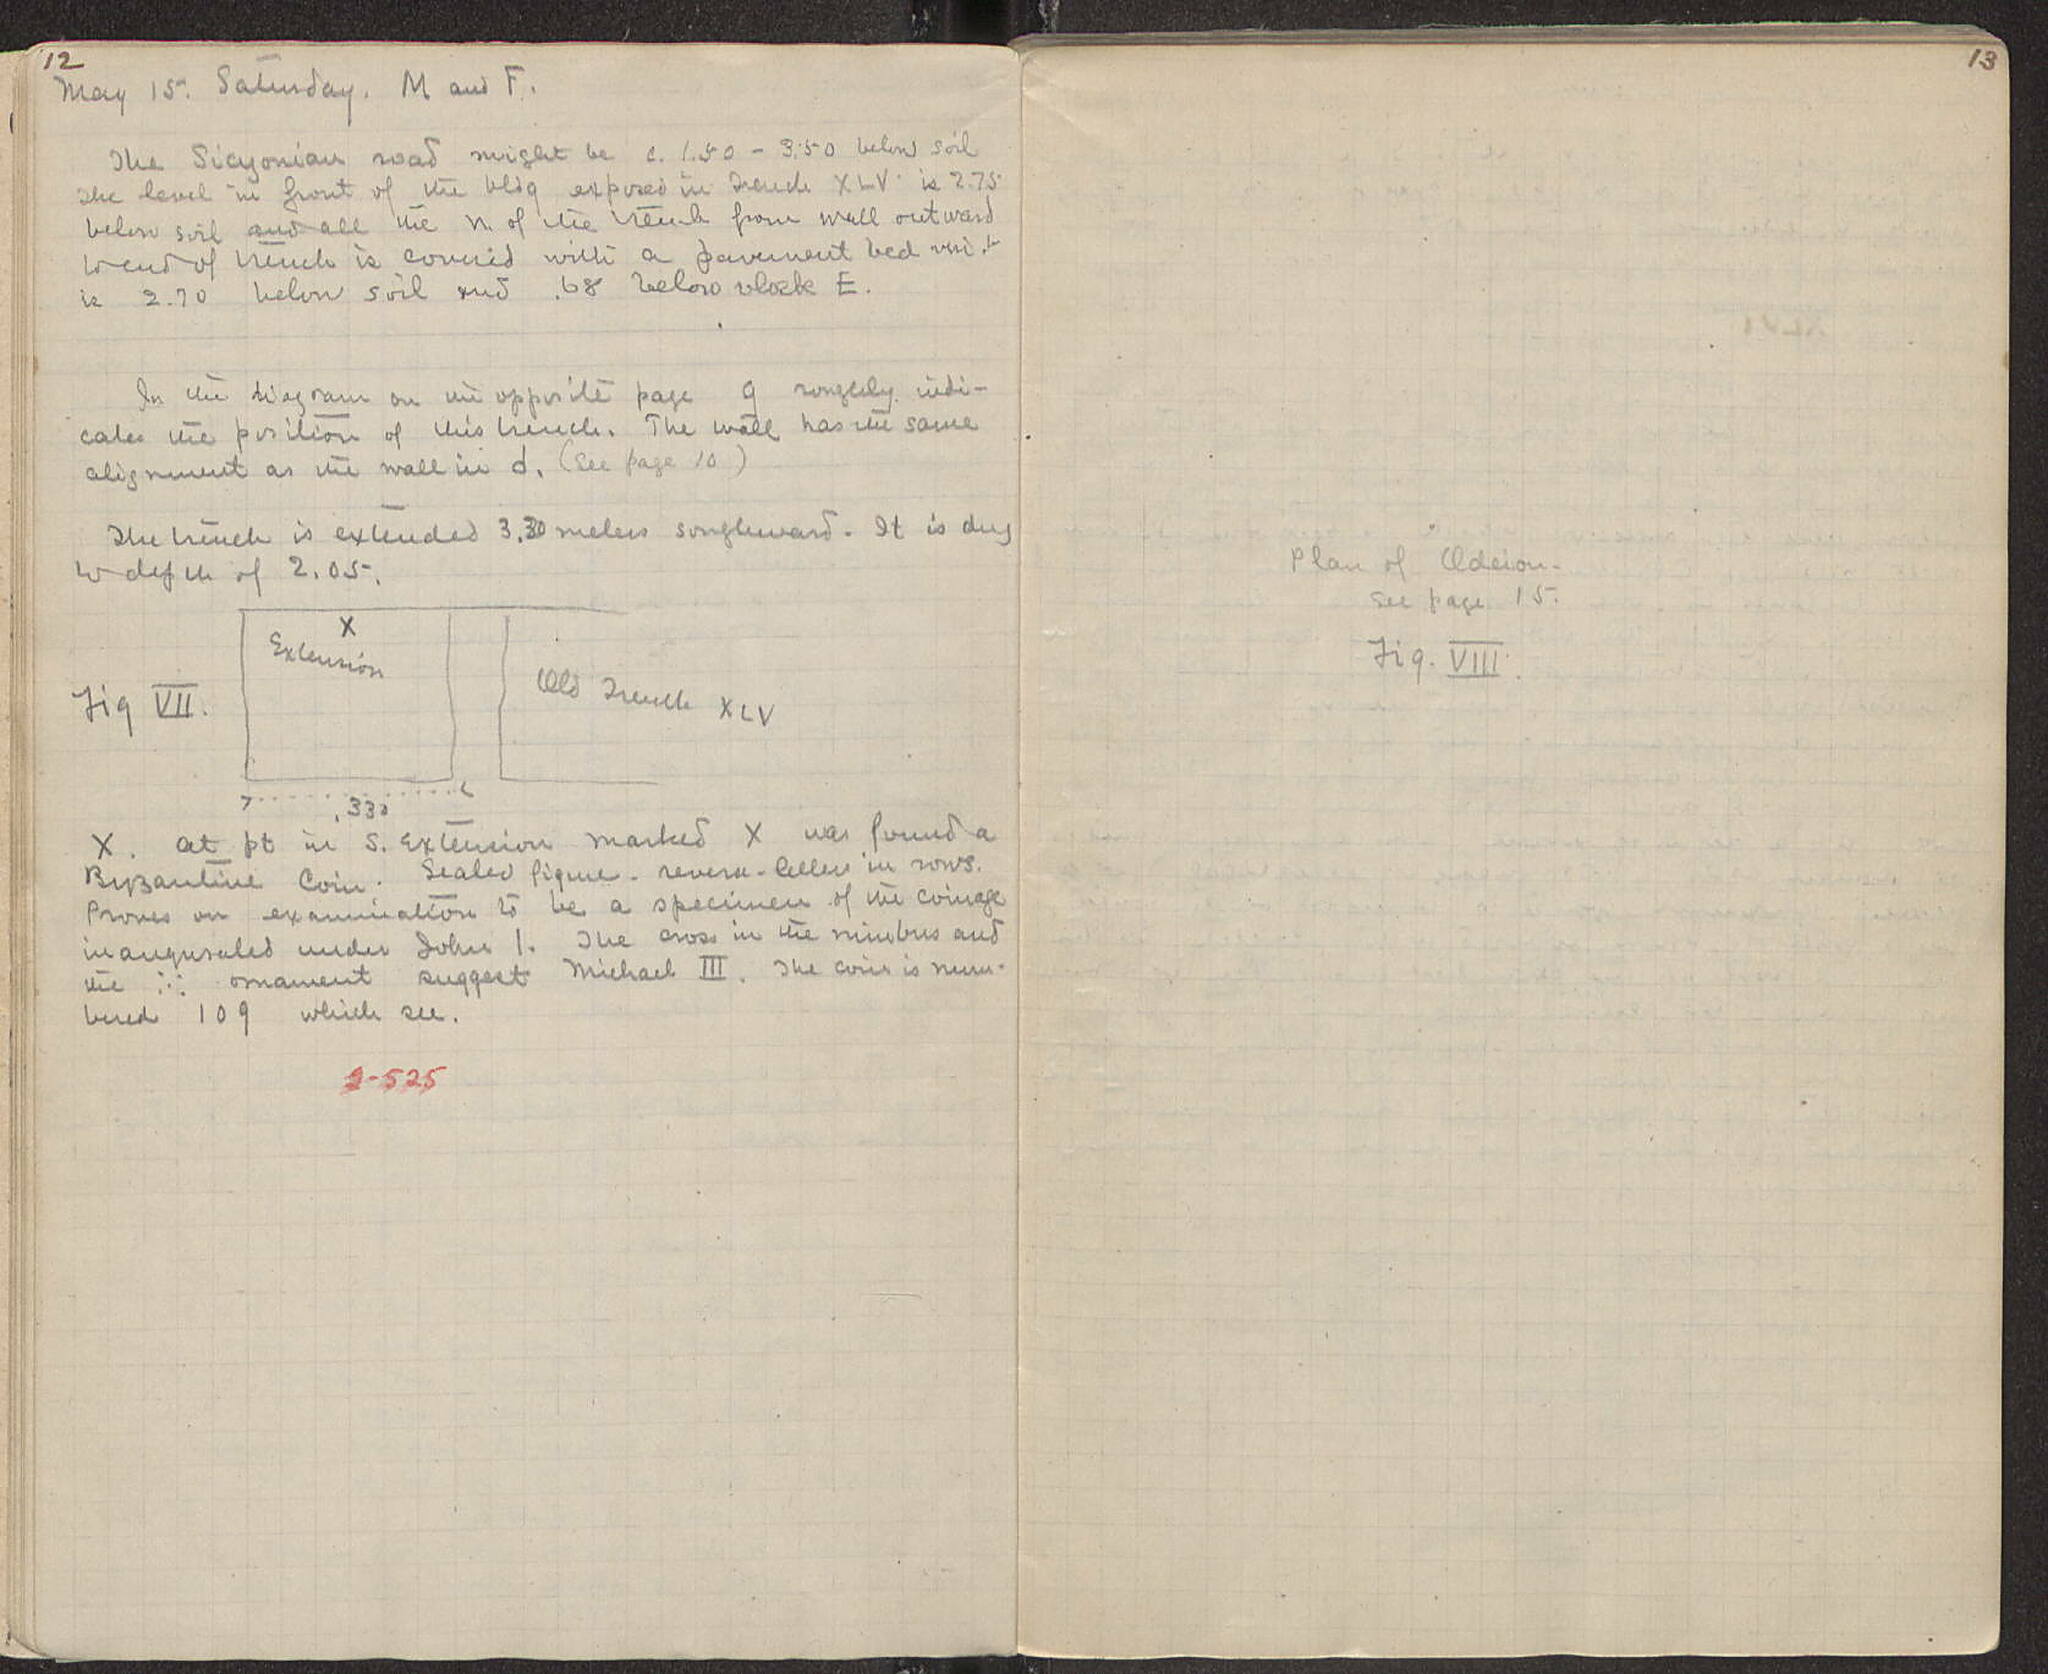 12
May 15. Saturday. M and F.
The Sicyonian road might be c. 1.50 - 3.50 below soil
The level in front of the bldg exposed in Trench XLV is 2.75
below soil and all the N. of the trench from wall outward
to end of trench is covered with a pavement bed
is 2.70 below soil and .68 below block E.
In the diagram on the opposite page g roughly indi-
cates the position of this trench. The wall has the same
alignment as the wall in d. (See page 10)
The trench is extended 3.30 meters southward. It is dug
to depth of 2.05.
X
Extension
Old Trench XLV
Fig VII.
330
X. at pt in S. Extension marked X was found a
Byzantine Coin. Seated figure - reverse - letters in rows.
Proves on examination to be a specimen of the coinage
inaugurated under John I. The cross in the nimbus and
the ornament suggest Michael III. The coin is num-
bered 109 which see.
2-525
13
Plan of Odeion -
See page 15.
Fig. VIII.